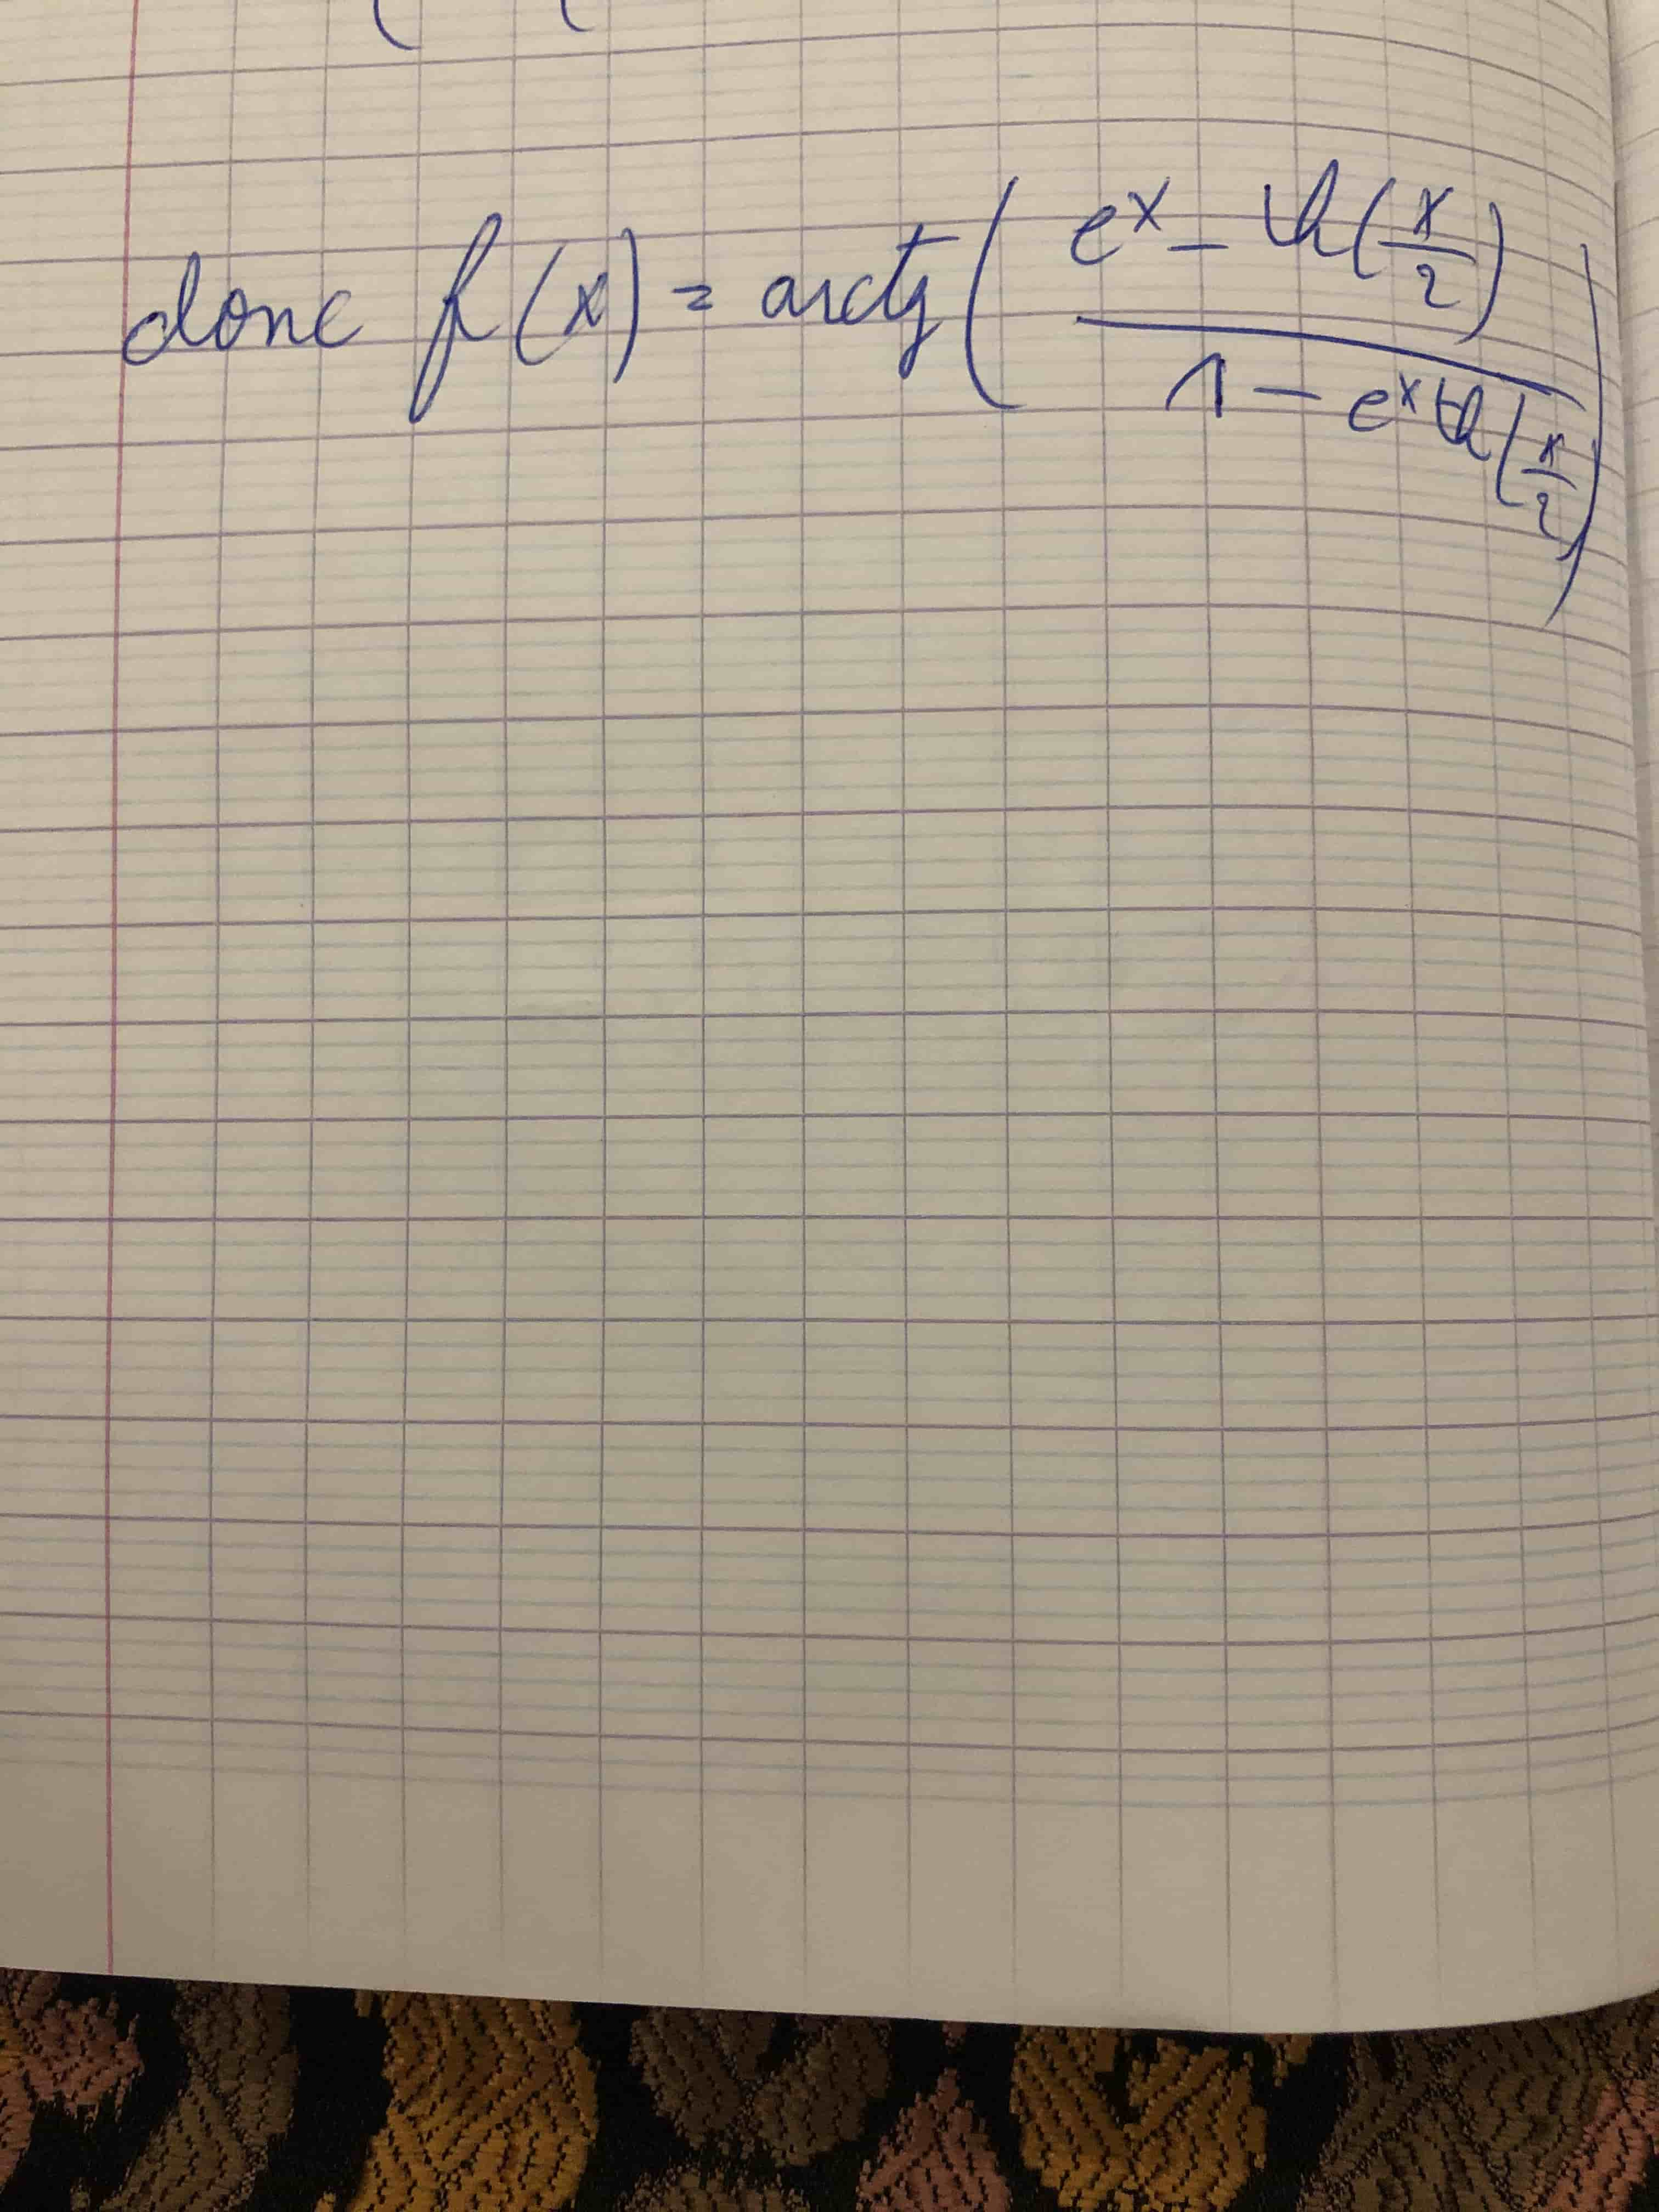 donc f(x) = arctg( (e^x - th(x/2)) / (1 - e^x th(x/2)) )